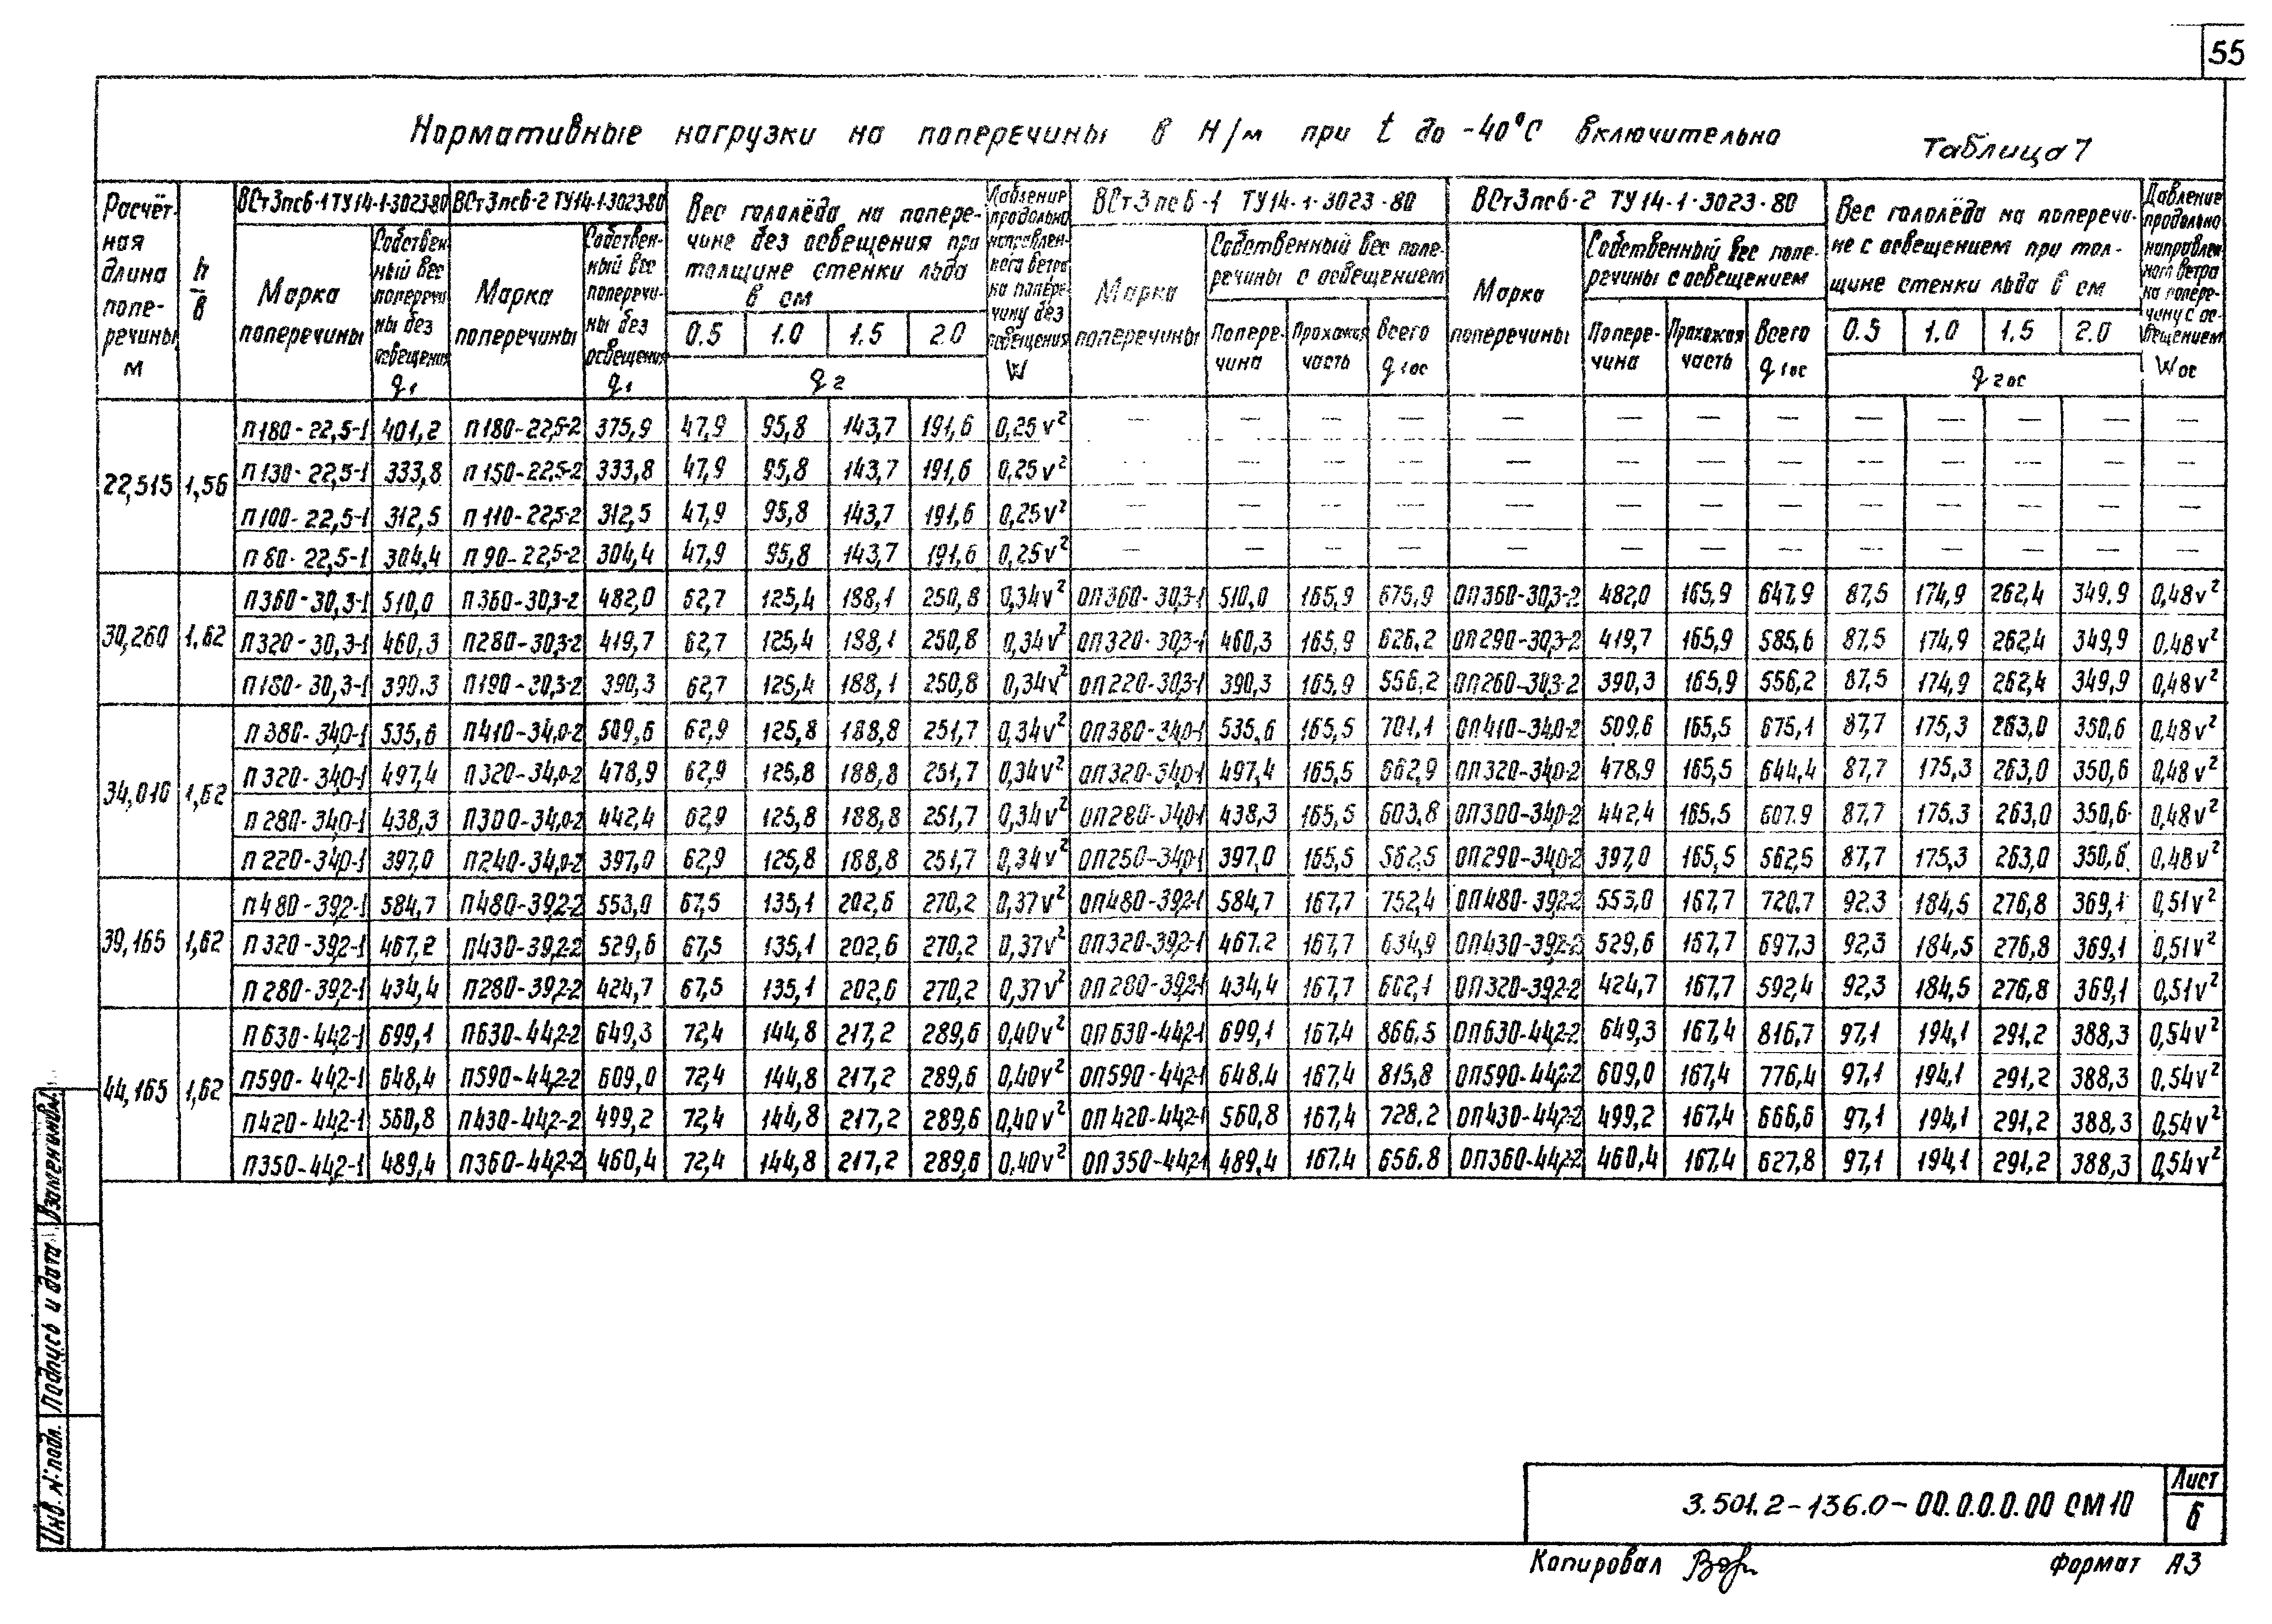 55
Нормативные нагрузки на поперечины в Н/м при t до -40°С включительно
Таблица 7
Расчётная длина поперечины м | h/в | ВСт3пс6-1 ТУ14-1-3023-80 | ВСт3пс6-2 ТУ14-1-3023-80 | Вес гололёда на поперечине без освещения при толщине стенки льда в см | Давление продольно направленного ветра на поперечину без освещения W | ВСт3пс6-1 ТУ14-1-3023-80 | ВСт3пс6-2 ТУ14-1-3023-80 | Вес гололёда на поперечине с освещением при толщине стенки льда в см | Давление продольно направленного ветра на поперечину с освещением Wос
Марка поперечины | Собственный вес поперечины без освещения q1 | Марка поперечины | Собственный вес поперечины без освещения q1 | 0.5 | 1.0 | 1.5 | 2.0 | Марка поперечины | Собственный вес поперечины с освещением | Марка поперечины | Собственный вес поперечины с освещением | 0.5 | 1.0 | 1.5 | 2.0
q2 | Поперечина | Прохожая часть | Всего q1ос | Поперечина | Прохожая часть | Всего q1ос | q2ос
22,515 | 1,56 | П180-22,5-1 | 401,2 | П180-22,5-2 | 375,9 | 47,9 | 95,8 | 143,7 | 191,6 | 0,25v² | — | — | — | — | — | — | — | — | — | — | — | — | —
П130-22,5-1 | 333,8 | П150-22,5-2 | 333,8 | 47,9 | 95,8 | 143,7 | 191,6 | 0,25v² | — | — | — | — | — | — | — | — | — | — | — | — | —
П100-22,5-1 | 312,5 | П110-22,5-2 | 312,5 | 47,9 | 95,8 | 143,7 | 191,6 | 0,25v² | — | — | — | — | — | — | — | — | — | — | — | — | —
П80-22,5-1 | 304,4 | П90-22,5-2 | 304,4 | 47,9 | 95,8 | 143,7 | 191,6 | 0,25v² | — | — | — | — | — | — | — | — | — | — | — | — | —
30,260 | 1,62 | П360-30,3-1 | 510,0 | П360-30,3-2 | 482,0 | 62,7 | 125,4 | 188,1 | 250,8 | 0,34v² | ОП360-30,3-1 | 510,0 | 165,9 | 675,9 | ОП360-30,3-2 | 482,0 | 165,9 | 647,9 | 87,5 | 174,9 | 262,4 | 349,9 | 0,48v²
П320-30,3-1 | 460,3 | П280-30,3-2 | 419,7 | 62,7 | 125,4 | 188,1 | 250,8 | 0,34v² | ОП320-30,3-1 | 460,3 | 165,9 | 626,2 | ОП290-30,3-2 | 419,7 | 165,9 | 585,6 | 87,5 | 174,9 | 262,4 | 349,9 | 0,48v²
П180-30,3-1 | 390,3 | П190-30,3-2 | 390,3 | 62,7 | 125,4 | 188,1 | 250,8 | 0,34v² | ОП220-30,3-1 | 390,3 | 165,9 | 556,2 | ОП260-30,3-2 | 390,3 | 165,9 | 556,2 | 87,5 | 174,9 | 262,4 | 349,9 | 0,48v²
34,010 | 1,62 | П380-34,0-1 | 535,6 | П410-34,0-2 | 509,6 | 62,9 | 125,8 | 188,8 | 251,7 | 0,34v² | ОП380-34,0-1 | 535,6 | 165,5 | 701,1 | ОП410-34,0-2 | 509,6 | 165,5 | 675,1 | 87,7 | 175,3 | 263,0 | 350,6 | 0,48v²
П320-34,0-1 | 497,4 | П320-34,0-2 | 478,9 | 62,9 | 125,8 | 188,8 | 251,7 | 0,34v² | ОП320-34,0-1 | 497,4 | 165,5 | 662,9 | ОП320-34,0-2 | 478,9 | 165,5 | 644,4 | 87,7 | 175,3 | 263,0 | 350,6 | 0,48v²
П280-34,0-1 | 438,3 | П300-34,0-2 | 442,4 | 62,9 | 125,8 | 188,8 | 251,7 | 0,34v² | ОП280-34,0-1 | 438,3 | 165,5 | 603,8 | ОП300-34,0-2 | 442,4 | 165,5 | 607,9 | 87,7 | 175,3 | 263,0 | 350,6 | 0,48v²
П220-34,0-1 | 397,0 | П240-34,0-2 | 397,0 | 62,9 | 125,8 | 188,8 | 251,7 | 0,34v² | ОП250-34,0-1 | 397,0 | 165,5 | 562,5 | ОП290-34,0-2 | 397,0 | 165,5 | 562,5 | 87,7 | 175,3 | 263,0 | 350,6 | 0,48v²
39,165 | 1,62 | П480-39,2-1 | 584,7 | П480-39,2-2 | 553,0 | 67,5 | 135,1 | 202,6 | 270,2 | 0,37v² | ОП480-39,2-1 | 584,7 | 167,7 | 752,4 | ОП480-39,2-2 | 553,0 | 167,7 | 720,7 | 92,3 | 184,5 | 276,8 | 369,1 | 0,51v²
П320-39,2-1 | 467,2 | П430-39,2-2 | 529,6 | 67,5 | 135,1 | 202,6 | 270,2 | 0,37v² | ОП320-39,2-1 | 467,2 | 167,7 | 634,9 | ОП430-39,2-2 | 529,6 | 167,7 | 697,3 | 92,3 | 184,5 | 276,8 | 369,1 | 0,51v²
П280-39,2-1 | 434,4 | П280-39,2-2 | 424,7 | 67,5 | 135,1 | 202,6 | 270,2 | 0,37v² | ОП280-39,2-1 | 434,4 | 167,7 | 602,1 | ОП320-39,2-2 | 424,7 | 167,7 | 592,4 | 92,3 | 184,5 | 276,8 | 369,1 | 0,51v²
44,165 | 1,62 | П630-44,2-1 | 699,1 | П630-44,2-2 | 649,3 | 72,4 | 144,8 | 217,2 | 289,6 | 0,40v² | ОП630-44,2-1 | 699,1 | 167,4 | 866,5 | ОП630-44,2-2 | 649,3 | 167,4 | 816,7 | 97,1 | 194,1 | 291,2 | 388,3 | 0,54v²
П590-44,2-1 | 648,4 | П590-44,2-2 | 609,0 | 72,4 | 144,8 | 217,2 | 289,6 | 0,40v² | ОП590-44,2-1 | 648,4 | 167,4 | 815,8 | ОП590-44,2-2 | 609,0 | 167,4 | 776,4 | 97,1 | 194,1 | 291,2 | 388,3 | 0,54v²
П420-44,2-1 | 560,8 | П430-44,2-2 | 499,2 | 72,4 | 144,8 | 217,2 | 289,6 | 0,40v² | ОП420-44,2-1 | 560,8 | 167,4 | 728,2 | ОП430-44,2-2 | 499,2 | 167,4 | 666,6 | 97,1 | 194,1 | 291,2 | 388,3 | 0,54v²
П350-44,2-1 | 489,4 | П360-44,2-2 | 460,4 | 72,4 | 144,8 | 217,2 | 289,6 | 0,40v² | ОП350-44,2-1 | 489,4 | 167,4 | 656,8 | ОП360-44,2-2 | 460,4 | 167,4 | 627,8 | 97,1 | 194,1 | 291,2 | 388,3 | 0,54v²
Взамен инв.№
Подпись и дата
Инв. № подл.
3.501.2-136.0-00.0.0.0.00 СМ10
Лист
6
Копировал
Формат А3